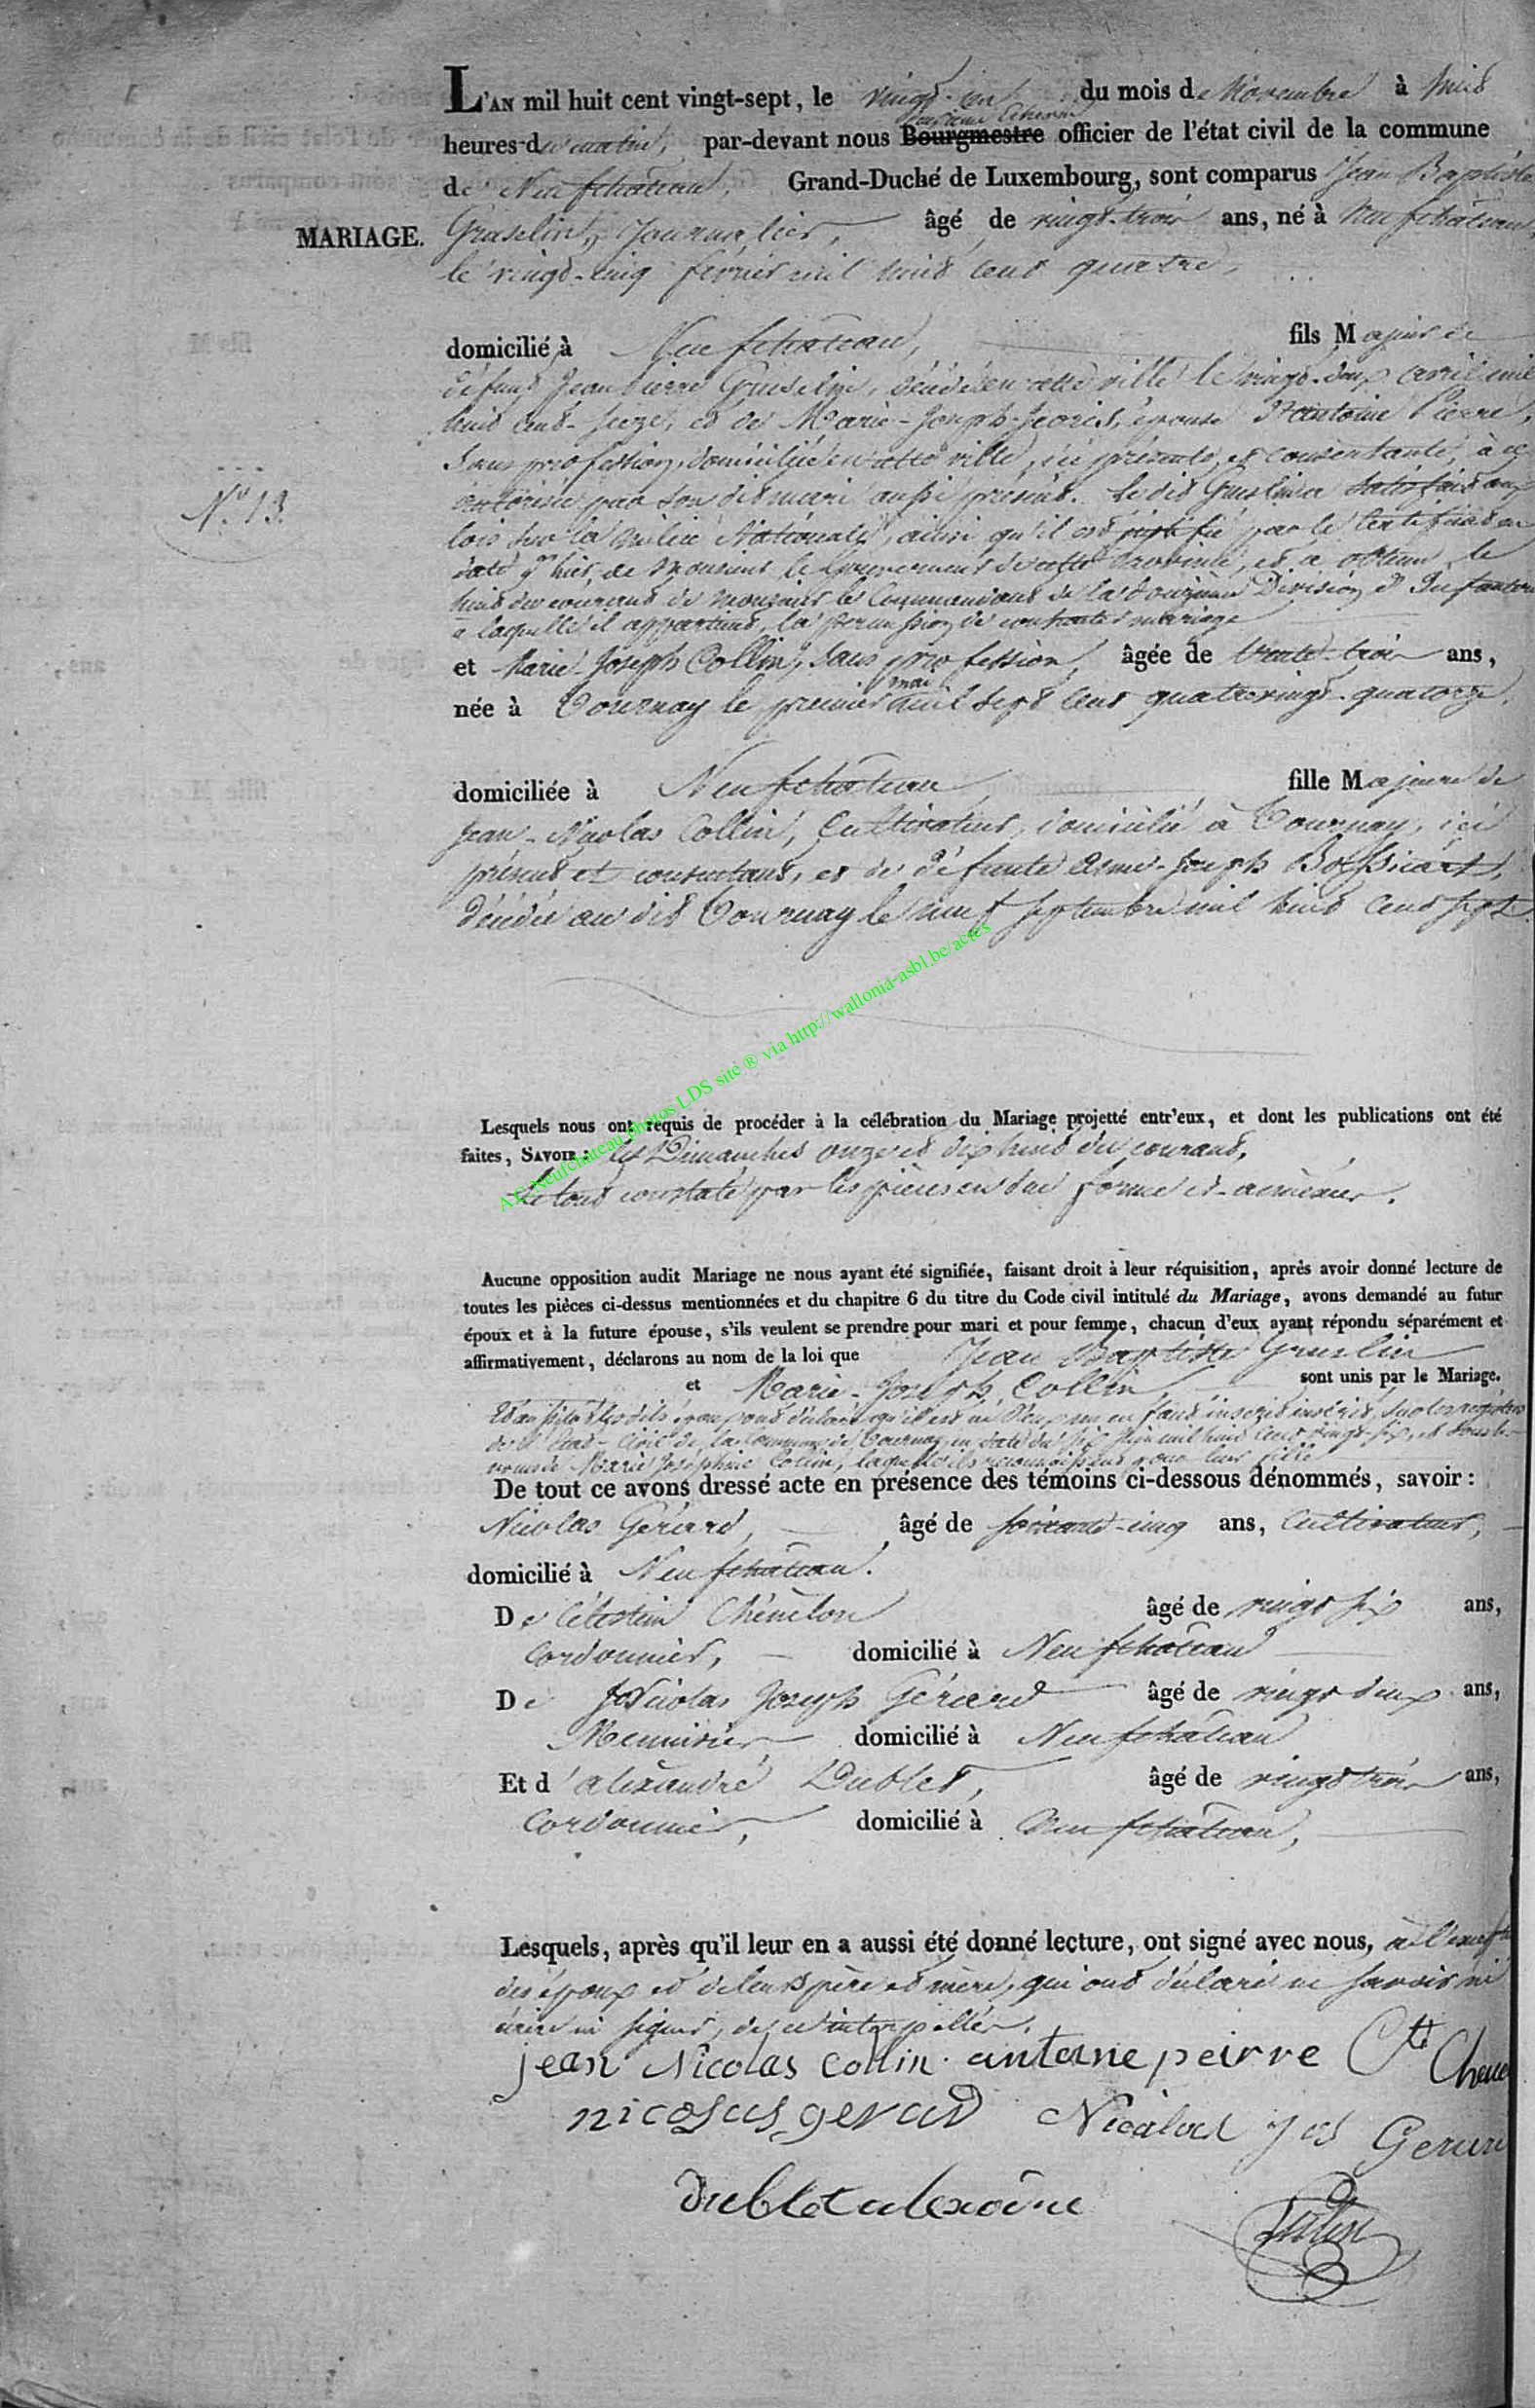 L'AN mil huit cent vingt-sept, le vingt-un du mois de Novembre à huit
premier Echevin
heures du matin, par-devant nous Bourgmestre officier de l'état civil de la commune
de Neufchâteau, Grand-Duché de Luxembourg, sont comparus Jean Baptiste
MARIAGE. Gruslin, Journalier, âgé de vingt-trois ans, né à Neufchâteau,
le vingt-cinq février mil huit cent quatre,
domicilié à Neufchâteau, fils Majeur de
défunt Jean Pierre Gruslin, décédé en cette ville le vingt-deux avril mil
huit cent-seize, et de Marie-Joseph épouse d'antoine Pierre,
sans profession, domiciliée en cette ville, ici présente et consentante, à ce
N.º 13.
autorisée par son dit mari aussi présent. Le dit Gruslin a satisfait aux
lois sur la milice Nationale, ainsi qu'il est justifié par le Certificat en
date d'hier, de Monsieur le Gouverneur de cette Province, et a obtenu le
huit du courant de Monsieur le Commandant de la Division d'Infanterie
à laquelle il appartient, la permission de contracter mariage
et Marie-Joseph Collin, sans profession, âgée de trente-trois ans,
mai
née à Tournay le premier mil sept cent quatrevingt-quatorze,
domiciliée à Neufchâteau, fille Majeure de
Jean-Nicolas Collin, Cultivateur, domicilié à Tournay, ici
présent et consentant, et de défunte Anne-Joseph Bossicart,
décédée au dit Tournay le neuf septembre mil huit cent sept.
A.C. Neufchateau photos LDS site ® via http://wallonia-asbl.be/actes
Lesquels nous ont requis de procéder à la célébration du Mariage projetté entr'eux, et dont les publications ont été
faites, SAVOIR: les Dimanches onze et dix huit du courant,
Le tout constaté par les pièces en due forme ci-annexées.
Aucune opposition audit Mariage ne nous ayant été signifiée, faisant droit à leur réquisition, après avoir donné lecture de
toutes les pièces ci-dessus mentionnées et du chapitre 6 du titre du Code civil intitulé du Mariage, avons demandé au futur
époux et à la future épouse, s'ils veulent se prendre pour mari et pour femme, chacun d'eux ayant répondu séparément et
affirmativement, déclarons au nom de la loi que Jean Baptiste Gruslin
et Marie-Joseph Collin sont unis par le Mariage.
Et aussitôt les dits époux ont déclaré qu'il est né d'eux un enfant inscrit sur les registres
de l'Etat-Civil de la Commune de Tournay, en date du six Juin mil huit cent vingt-six, et sous le
nom de Marie Joséphine Collin, laquelle ils reconnaissent pour leur fille
De tout ce avons dressé acte en présence des témoins ci-dessous dénommés, savoir:
Nicolas Gérard, âgé de soixante-cinq ans, Cultivateur,
domicilié à Neufchâteau.
De Célestin Chénelon âgé de vingt six ans,
Cordonnier, domicilié à Neufchâteau
De Nicolas Joseph Gérard âgé de vingt deux ans,
Menuisier domicilié à Neufchâteau
Et d'alexandre Dublet, âgé de vingt trois ans,
Cordonnier, domicilié à Neufchâteau,
Lesquels, après qu'il leur en a aussi été donné lecture, ont signé avec nous, à l'excepton
des époux et de leurs père et mère, qui ont déclaré ne savoir ni
écrire ni signer, de ce interpellés.
jean Nicolas collin antoine peirre Ctn
nicolas gerard Nicolas jos Gerard
dublet alexandre